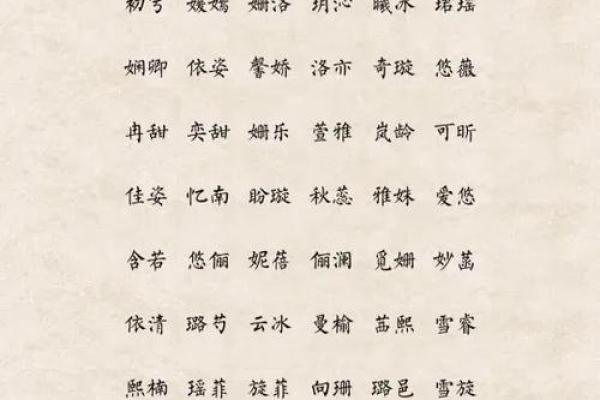 初兮 媛嫣 姗洛 玥沁 曦冰 珺瑶
娴卿 依姿 馨娇 洛亦 奇璇 悠薇
冉甜 奕甜 姗乐 萱雅 岚龄 可昕
佳姿 忆南 盼璇 秋蕊 雅姝 爱悠
含若 悠俪 妮蓓 俪澜 觅姗 妙菡
依清 璐芍 云冰 曼榆 茜熙 雪睿
熙楠 瑶菲 旋菲 向珊 璐邑 雪旋